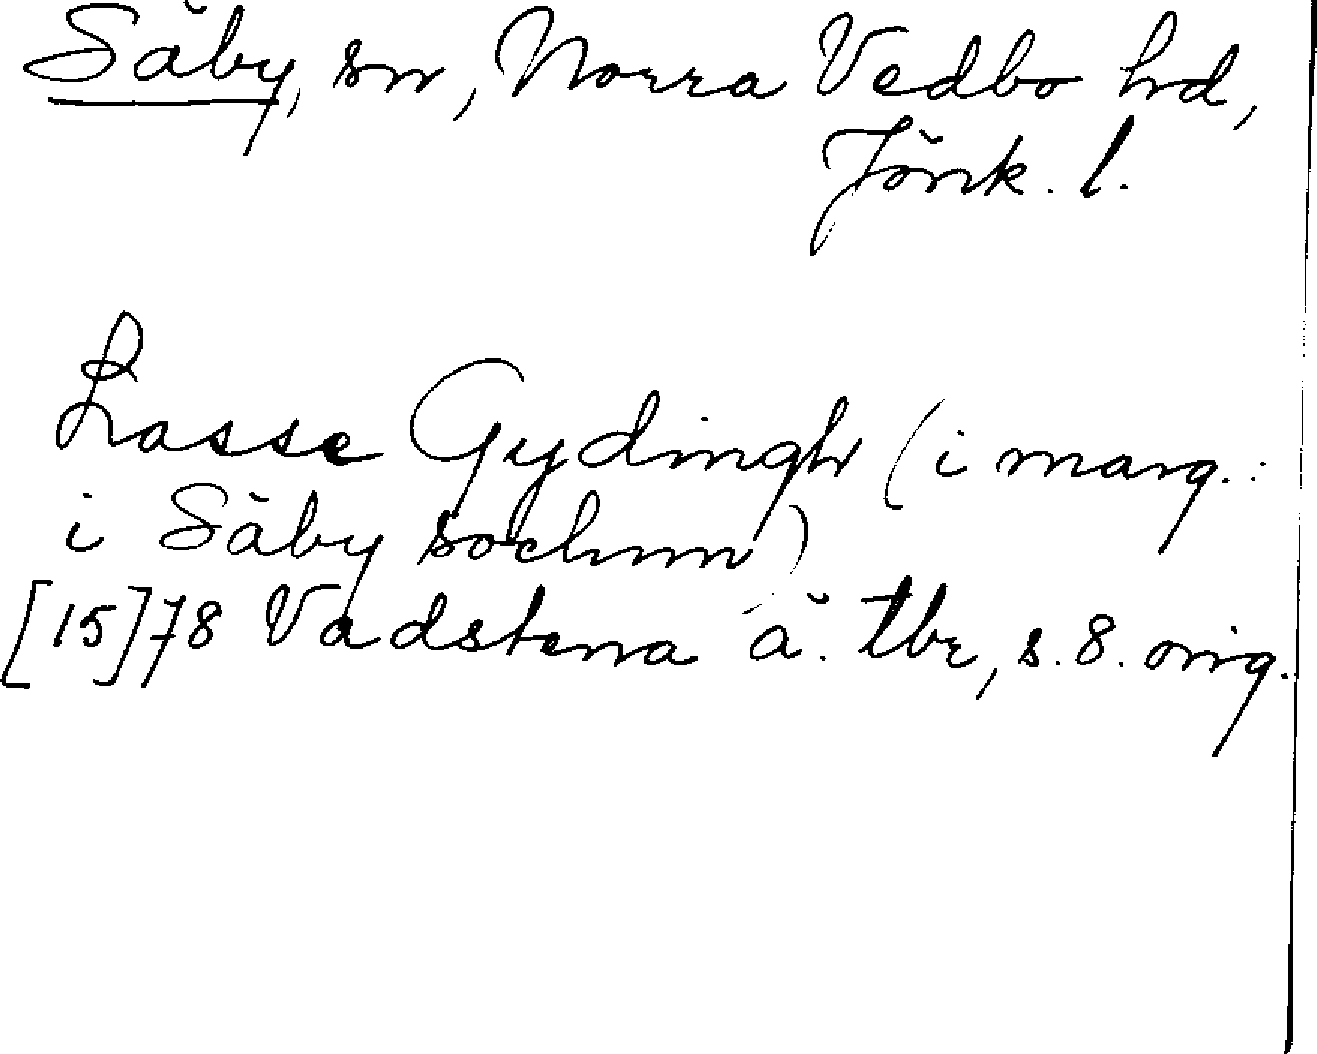 Säby, sn, Norra Vedbo hd,
Jönk. l.
Lasse Gydingh (i marg.:
i Säby sochnn)
[15]78 Vadstena ä. tbr, s. 8. orig.